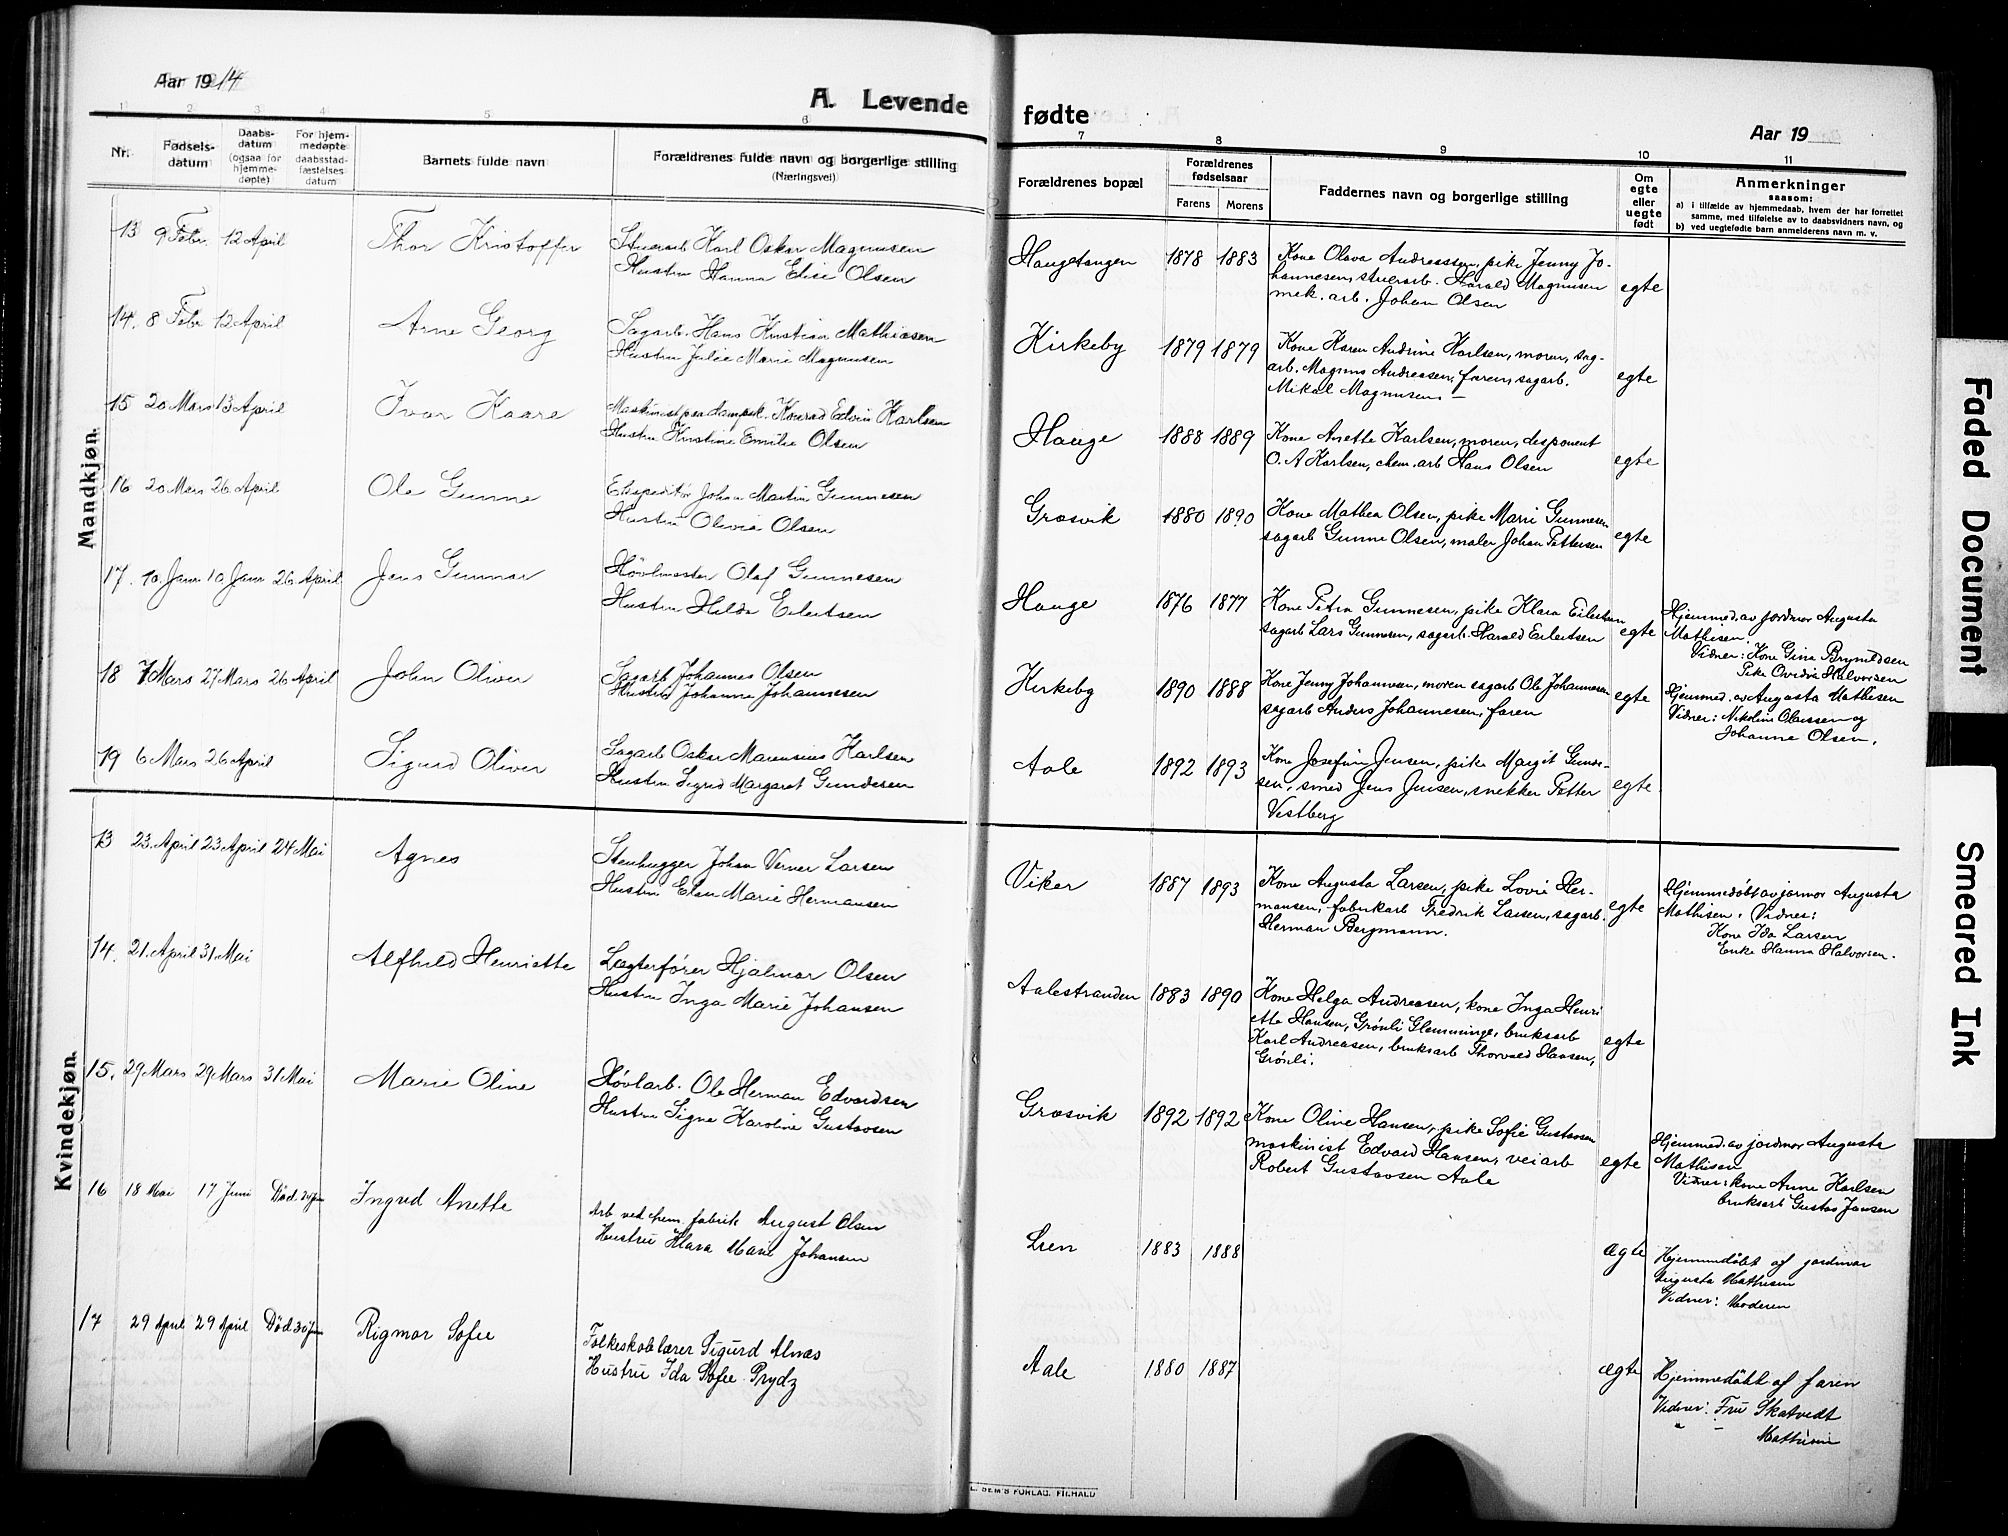 Aar 1914
A. Levende
Nr.
Fødsels-
datum
Daabs-
datum
(ogsaa for
hjemme-
døpte)
For hjem-
medøpte
daabsstad-
fæstelses
datum
Barnets fulde navn
Forældrenes fulde navn og borgerlige stilling
(Næringsvei)
Mandkjøn.
13 9 Febr. 12 April Thor Kristoffer Stuerarb. Karl Oskar Magnusen
Hustru Hanna Elise Olsen
14. 8 Febr 12 April Arne Georg Sagarb. Hans Kristian Mathiasen
Hustru Julie Marie Magnusen
15 20 Mars 13 April Ivar Kaare Maskinist paa dampsk. Konrad Edvin Karlsen
Hustru Kristine Emilie Olsen
16 20 Mars 26 April Ole Gunne Ekspeditør Johan Martin Gunnesen
Hustru Olivia Olsen
17. 10. Janr 10 Janr 26 April Jens Gunnar Høvlmester Olaf Gunnesen
Hustru Hilda Eilertsen
18 7 Mars 27 Mars 26 April John Oliver Sagarb Johannes Olsen
Hustru Johanne Johannesen
19 6 Mars 26 April Sigurd Oliver Sagarb Oskar Marensius Karlsen
Hustru Sigrid Margaret Gundesen
Kvindekjøn.
13 23. April 23 April 24 Mai Agnes Stenhugger Johan Verner Larsen
Hustru Elsa Marie Hermansen
14. 21. April 31 Mai Alfhild Henriette Lægterfører Hjalmar Olsen
Hustru Inga Marie Johansen
15. 29 Mars 29 Mars 31 Mai Marie Oline Høvlarb. Ole Herman Edvardsen
Hustru Signe Karoline Gustavsen
16 18 Mai 17 Juni Død. Ingrid Anette Arb ved chem. fabrik August Olsen
Hustru Klara Marie Johansen
17 29 April 29 April Død Rigmor Sofie Folkeskolelærer Sigurd Alnæs
Hustru Ida Sofie Prydz
fødte
Aar 19
7 8 9 10 11
Forældrenes bopæl
Forældrenes
fødselsaar
Farens Morens
Faddernes navn og borgerlige stilling
Om
egte
eller
uegte
født
Anmerkninger
saasom:
a) i tilfælde av hjemmedaab, hvem der har forrettet
samme, med tilføielse av to daabsvidners navn, og
b) ved uegtefødte barn anmelderens navn m. v.
Haugetangen 1878 1883 Kone Olava Andreassen, pike Jenny Jo-
hannesen, stuerarb. Harald Magnusen egte
mek. arb. Johan Olsen
Kirkeby 1879 1879 Kone Karen Andrine Karlsen, moren, sag-
arb. Magnus Andreasen, faren, sagarb. egte
Mikal Magnusen
Hauge 1888 1889 Kone Anette Karlsen, moren, disponent
O. A Karlsen, chem. arb Hans Olsen egte
Græsvik 1880 1890 Kone Mathea Olsen, pike Marie Gunnesen
sagarb Gunne Olsen, maler Johan Pettersen egte
Hauge 1876 1877 Kone Petra Gunnesen, pike Klara Eilertsen
sagarb Lars Gunnesen, sagarb. Harald Eilertsen egte
Hjemmed. av jordmor Augusta
Mathisen.
Vidner: Kone Gina Brynildsen
Pike Ovidia Halvorsen
Kirkeby 1890 1888 Kone Jenny Johannesen, moren sagarb Ole Johannesen
sagarb Anders Johannesen, faren egte
Hjemmed. av Augusta Mathisen
Vidner: Nikoline Olaussen og
Johanne Olsen.
Aale 1892 1893 Kone Josefine Jensen, pike Margit Gunde-
sen, smed Jens Jensen, snekker Petter egte
Vestberg
Viker 1887 1893 Kone Augusta Larsen, pike Lovie Her-
mansen, fabrikarb Fredrik Larsen, sagarb. egte
Herman Bergmann.
Hjemmedøbt av jormor Augusta
Mathisen. Vidner:
Kone Ida Larsen
Enke Hanna Halvorsen.
Aalestranden 1883 1890 Kone Helga Andreasen, kone Inga Henri
ette Hansen, Grønli Glemminge, bruksarb
Karl Andreasen, bruksarb Thorvald Hansen, egte
Grønli.
Græsvik 1892 1892 Kone Oline Hansen, pike Sofie Gustavsen
maskinist Edvard Hansen, veiarb egte
Robert Gustavsen Aale
Hjemmed. av jordmor Augusta
Mathisen
Vidner: kone Anne Karlsen
bruksarb Gustav Jansen
Lren 1883 1888 ægte
Hjemmedøbt af jordmor
Augusta Mathisen
Vidner: Moderen
Aale 1880 1887 ægte
Hjemmedøbt af faren
Vidner: Fru Skatvedt
" – Mathisen
SEM'S FORLAG. FR.HALD
Faded Document
Smeared Ink